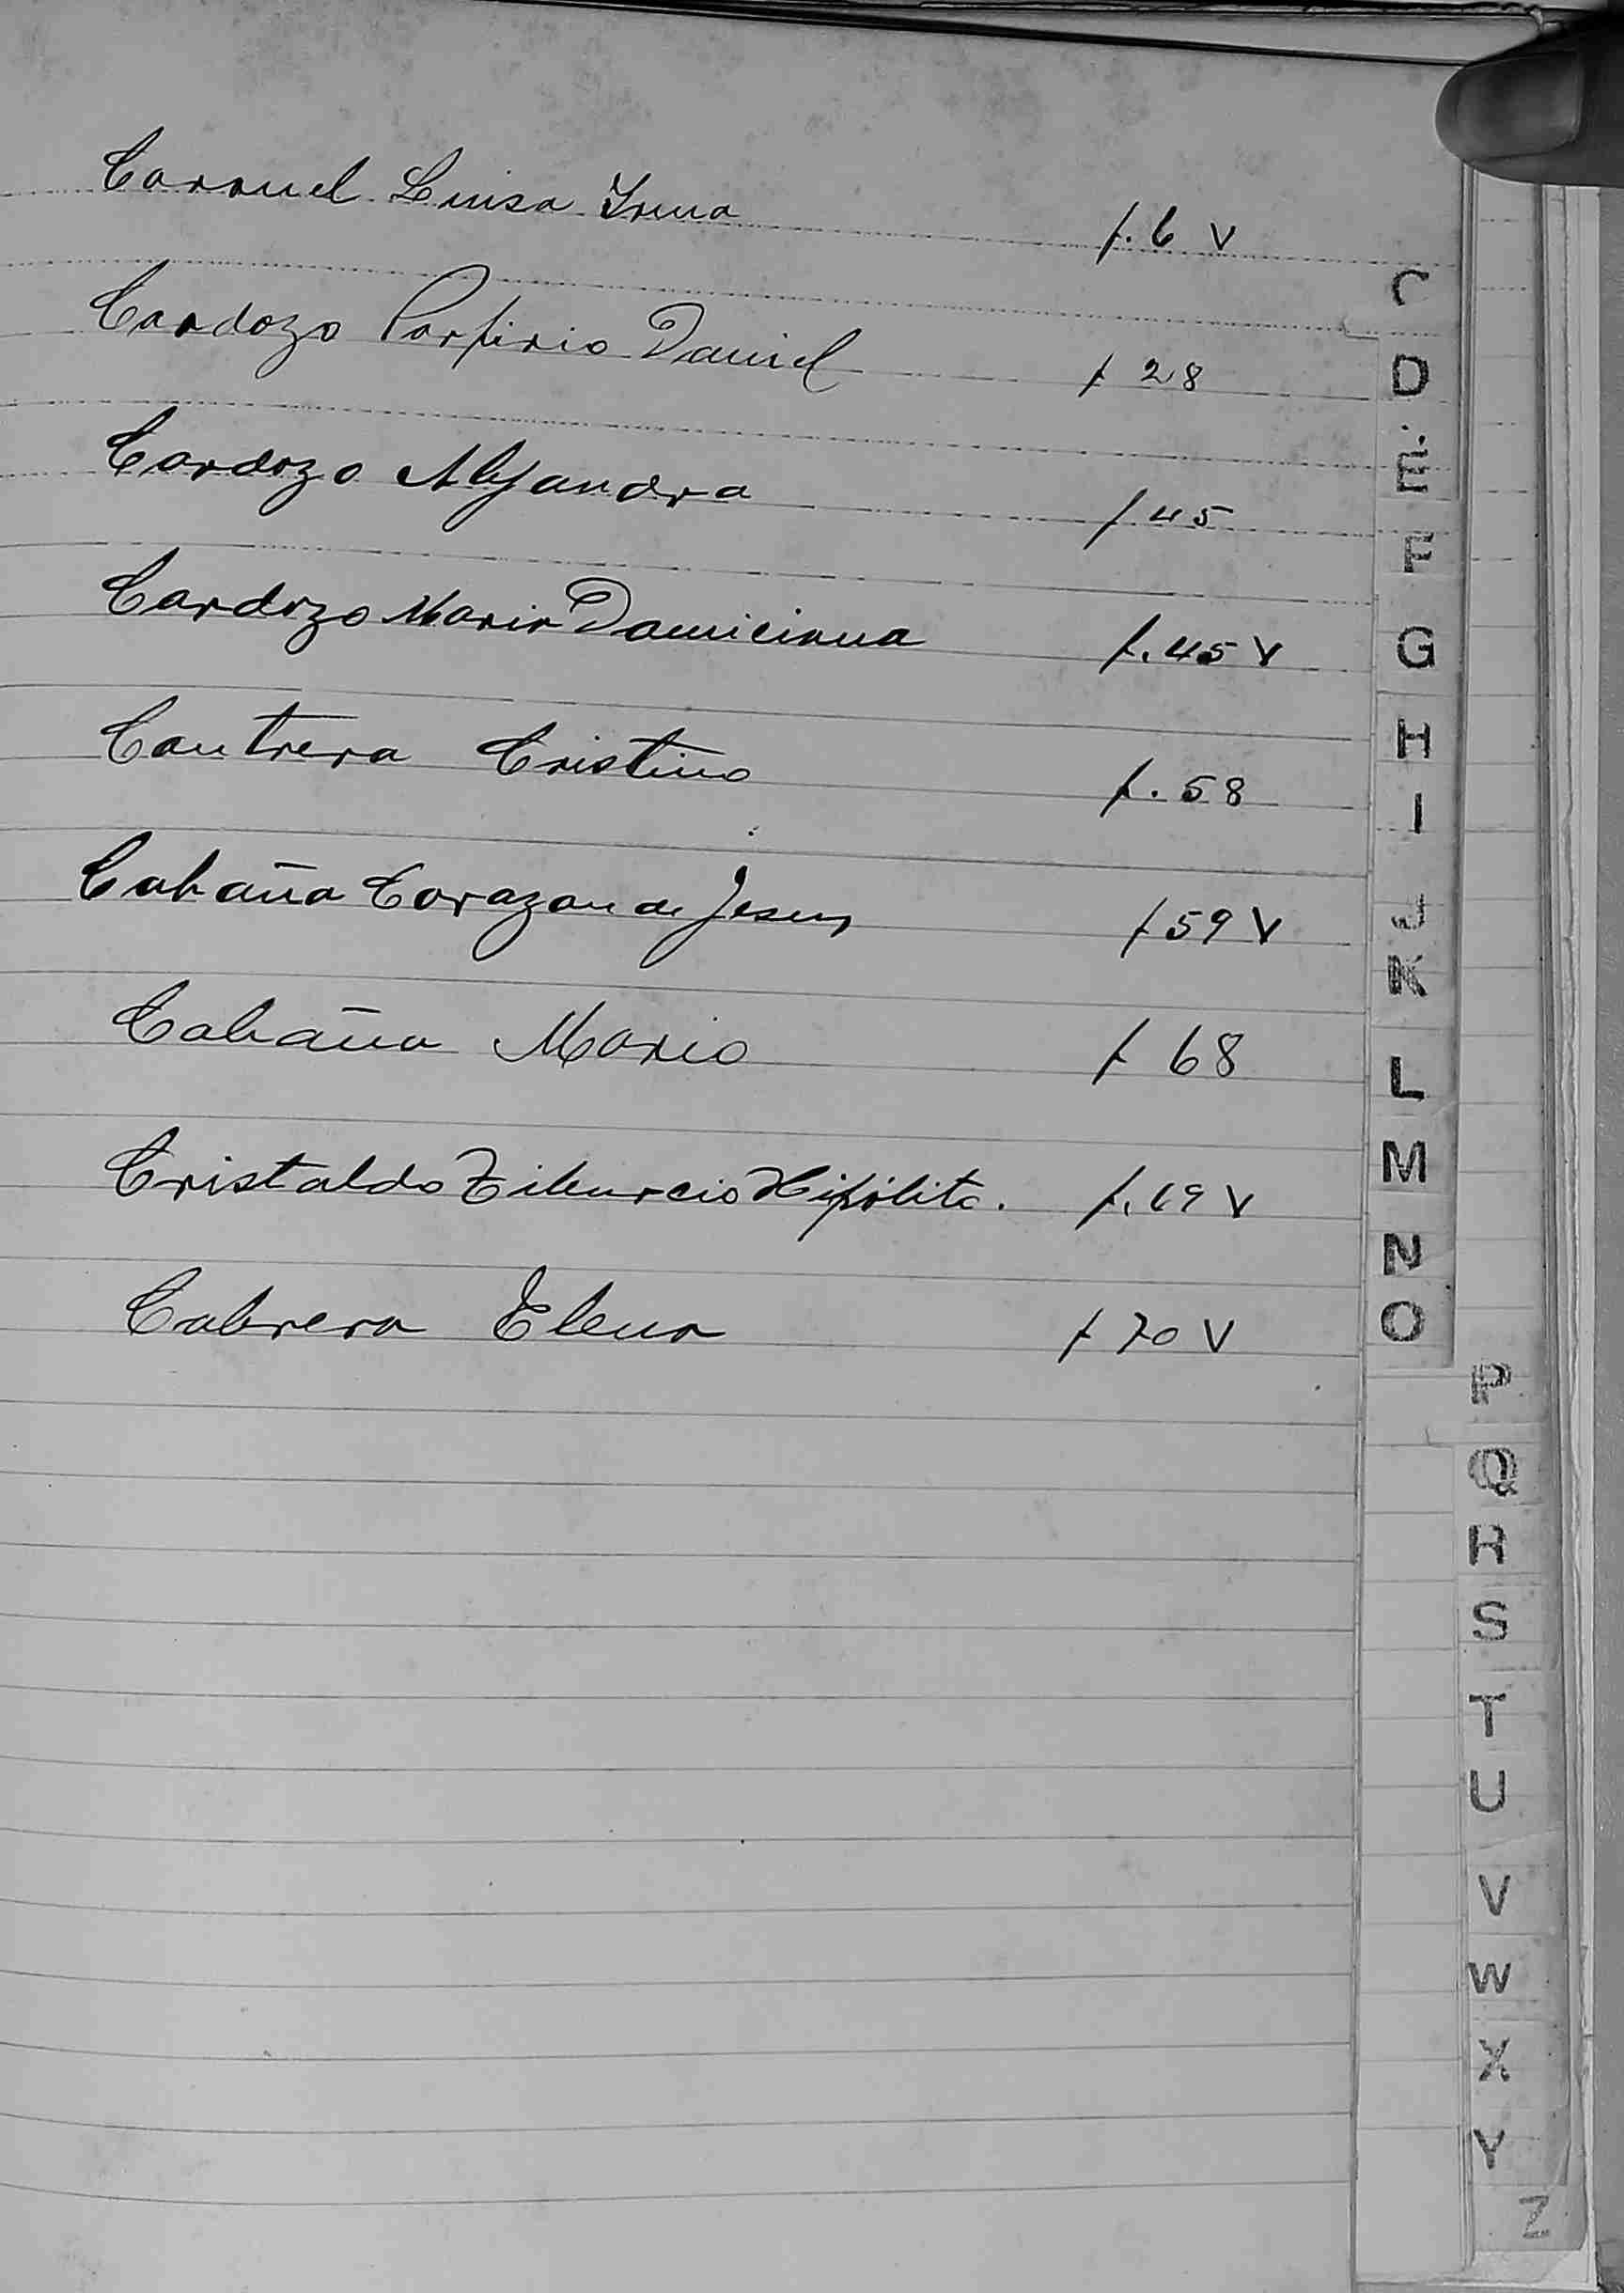 Coronel Luisa Irma f. 6 v
Cardozo Porfirio Daniel f 28
Cardozo Alejandra f 45
Cardozo Maria Damiciana f. 45 v
Contrera Cristino f. 58
Cabaña Corazon de Jesus f 59 v
Cabaña Mario f 68
Cristaldo Tiburcio Hipólito. f. 69 v
Cabrera Elena f 70 v
C
D
E
F
G
H
I
J
K
L
M
N
O
P
Q
R
S
T
U
V
W
X
Y
Z